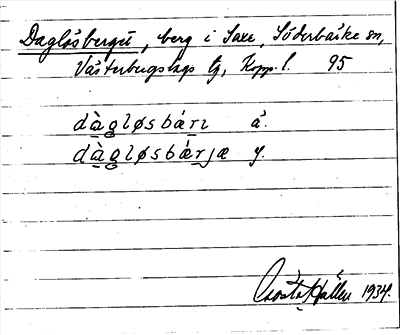 Daglösberget, berg i Saxe, Söderbärke sn,
Västerbergslags tg, Kopp. l. 95
dàgløsbærɩ ä.
dàgløsbærjæ y.
Gösta 1934.